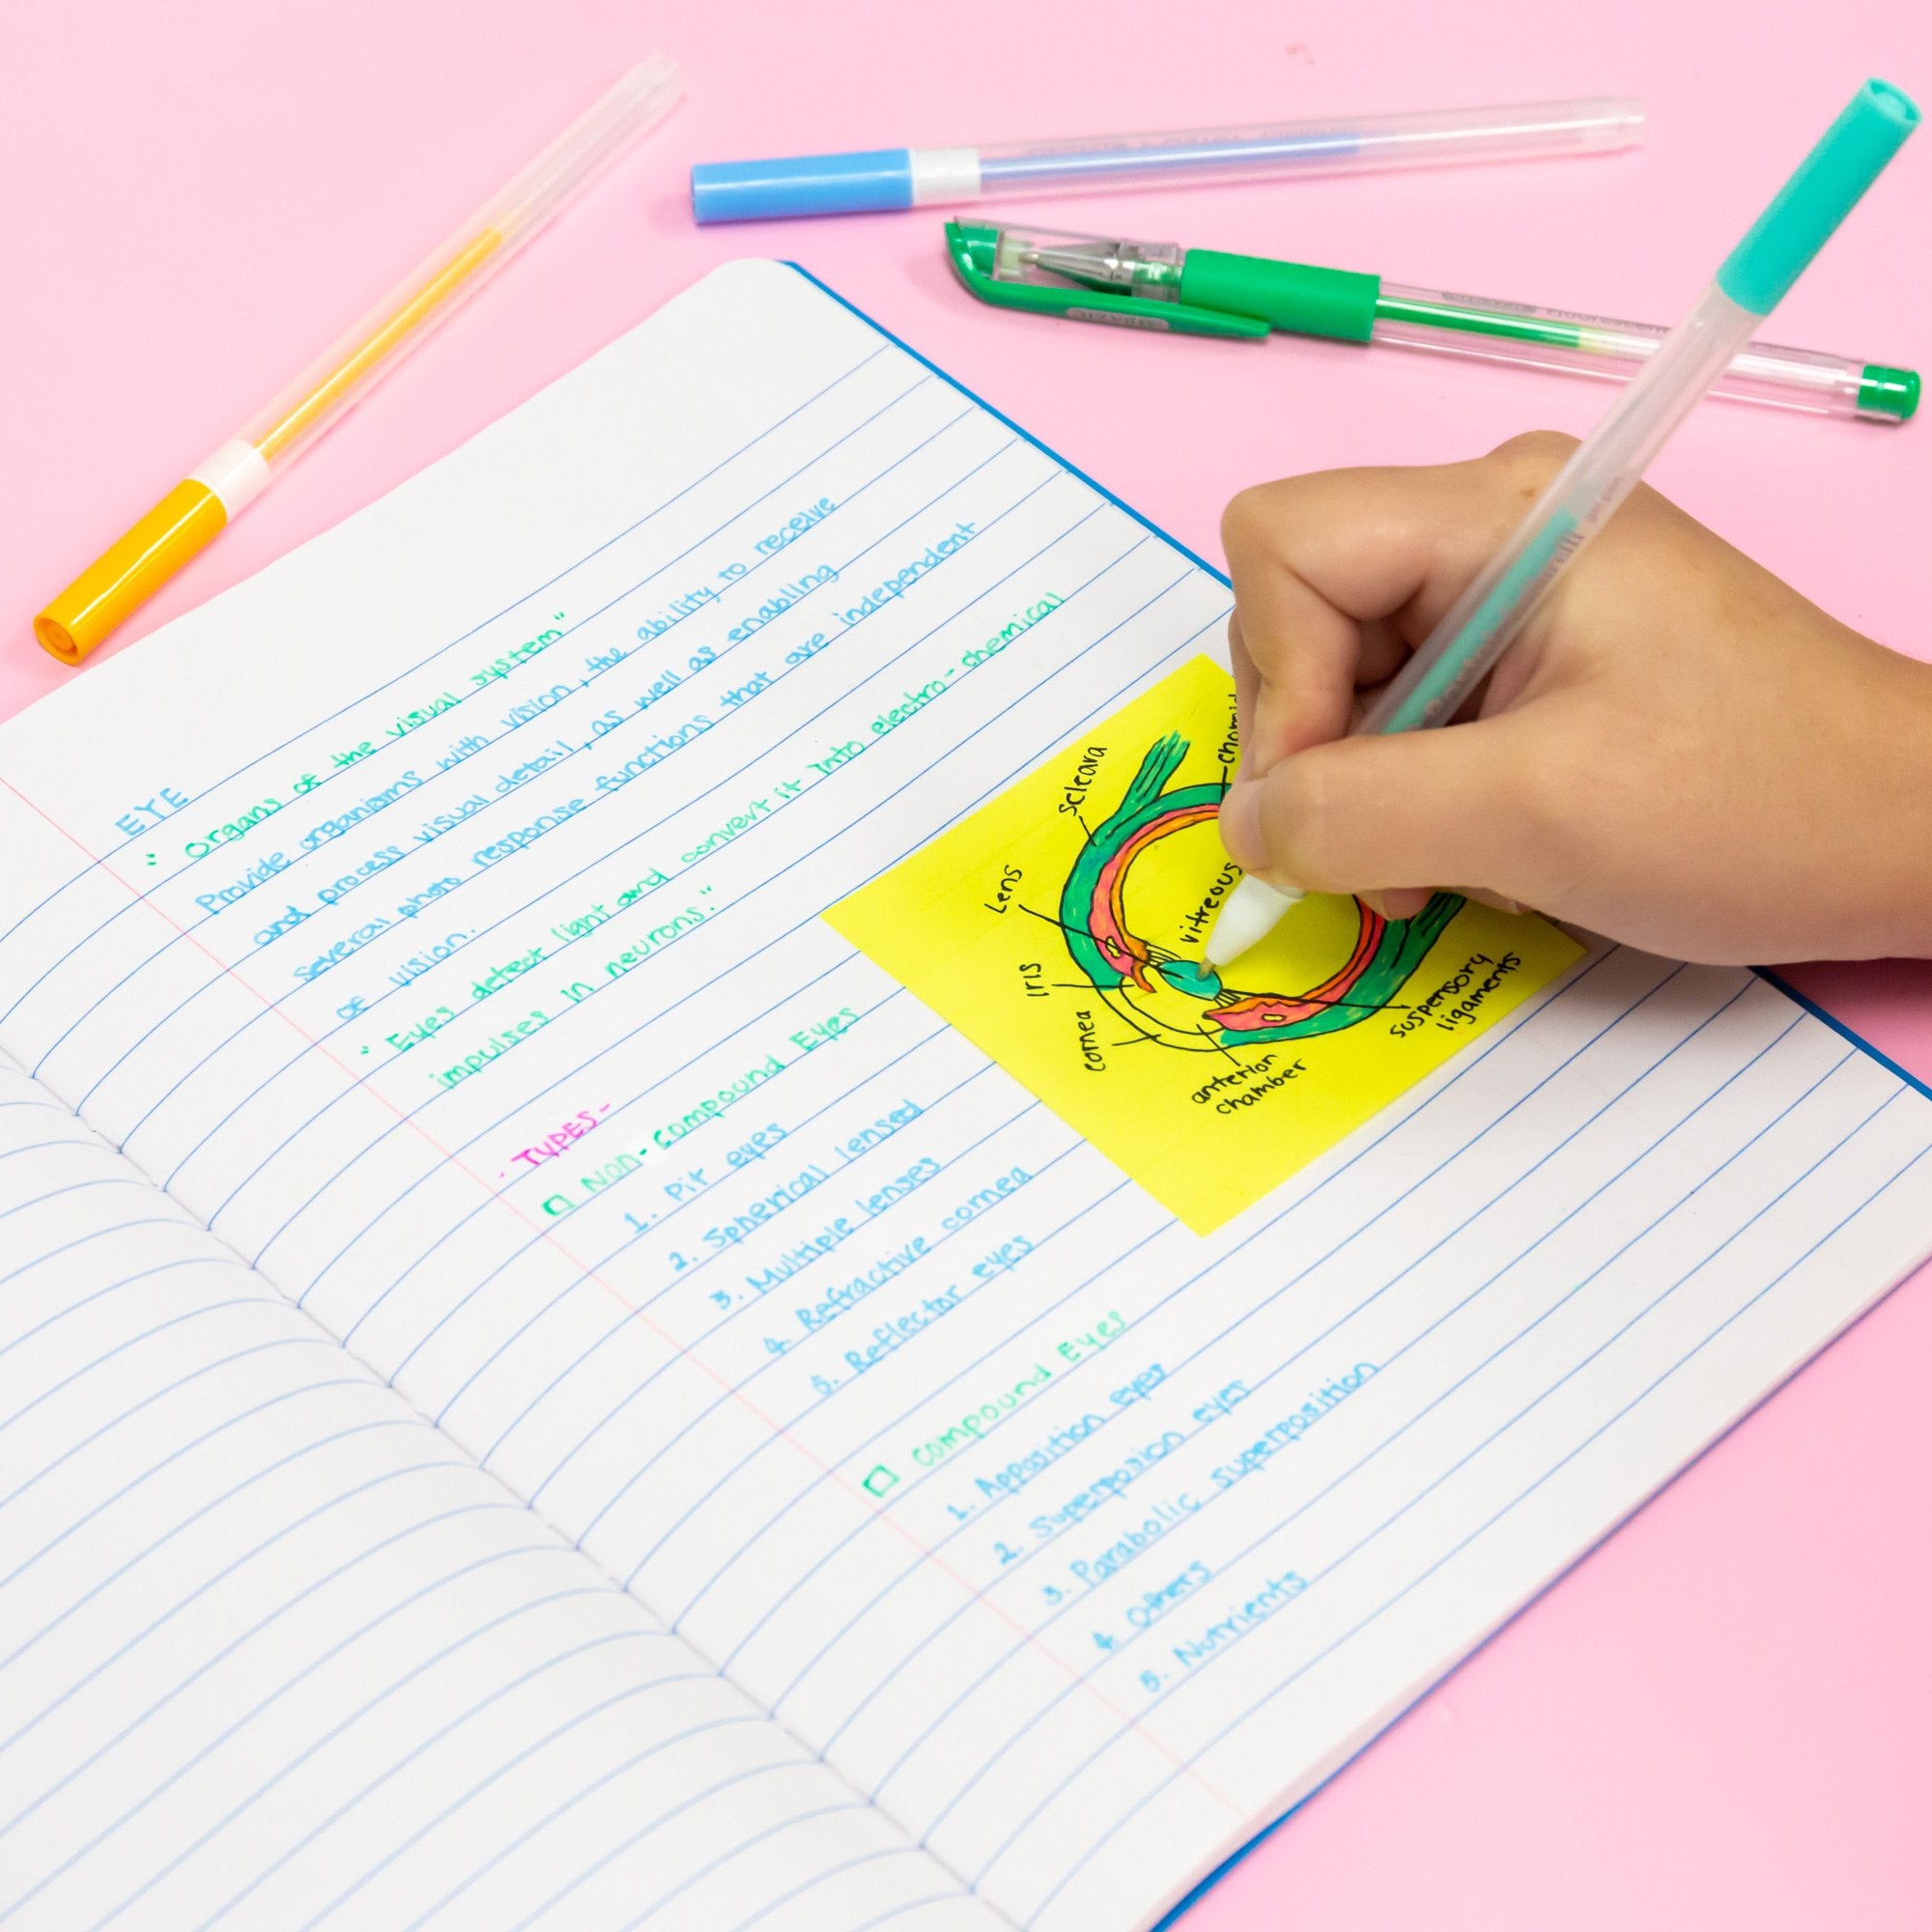 EYE
" Organs of the visual system"
Provide organisms with vision, the ability to receive
and process visual detail, as well as enabling
several photo response functions that are independent
of vision.
" Eyes detect light and convert it into electro-chemical
impulses in neurons."
- TYPES -
Non-compound Eyes
1. Pit eyes
2. Spherical lensed
3. Multiple lenses
4. Refractive cornea
5. Reflector eyes
compound Eyes
1. Apposition eyes
2. Superposion eyes
3. Parabolic superposition
4. Others
5. Nutrients
Scleara
Lens
Iris
cornea
vitreous
anterion
chamber
suspensory
ligaments